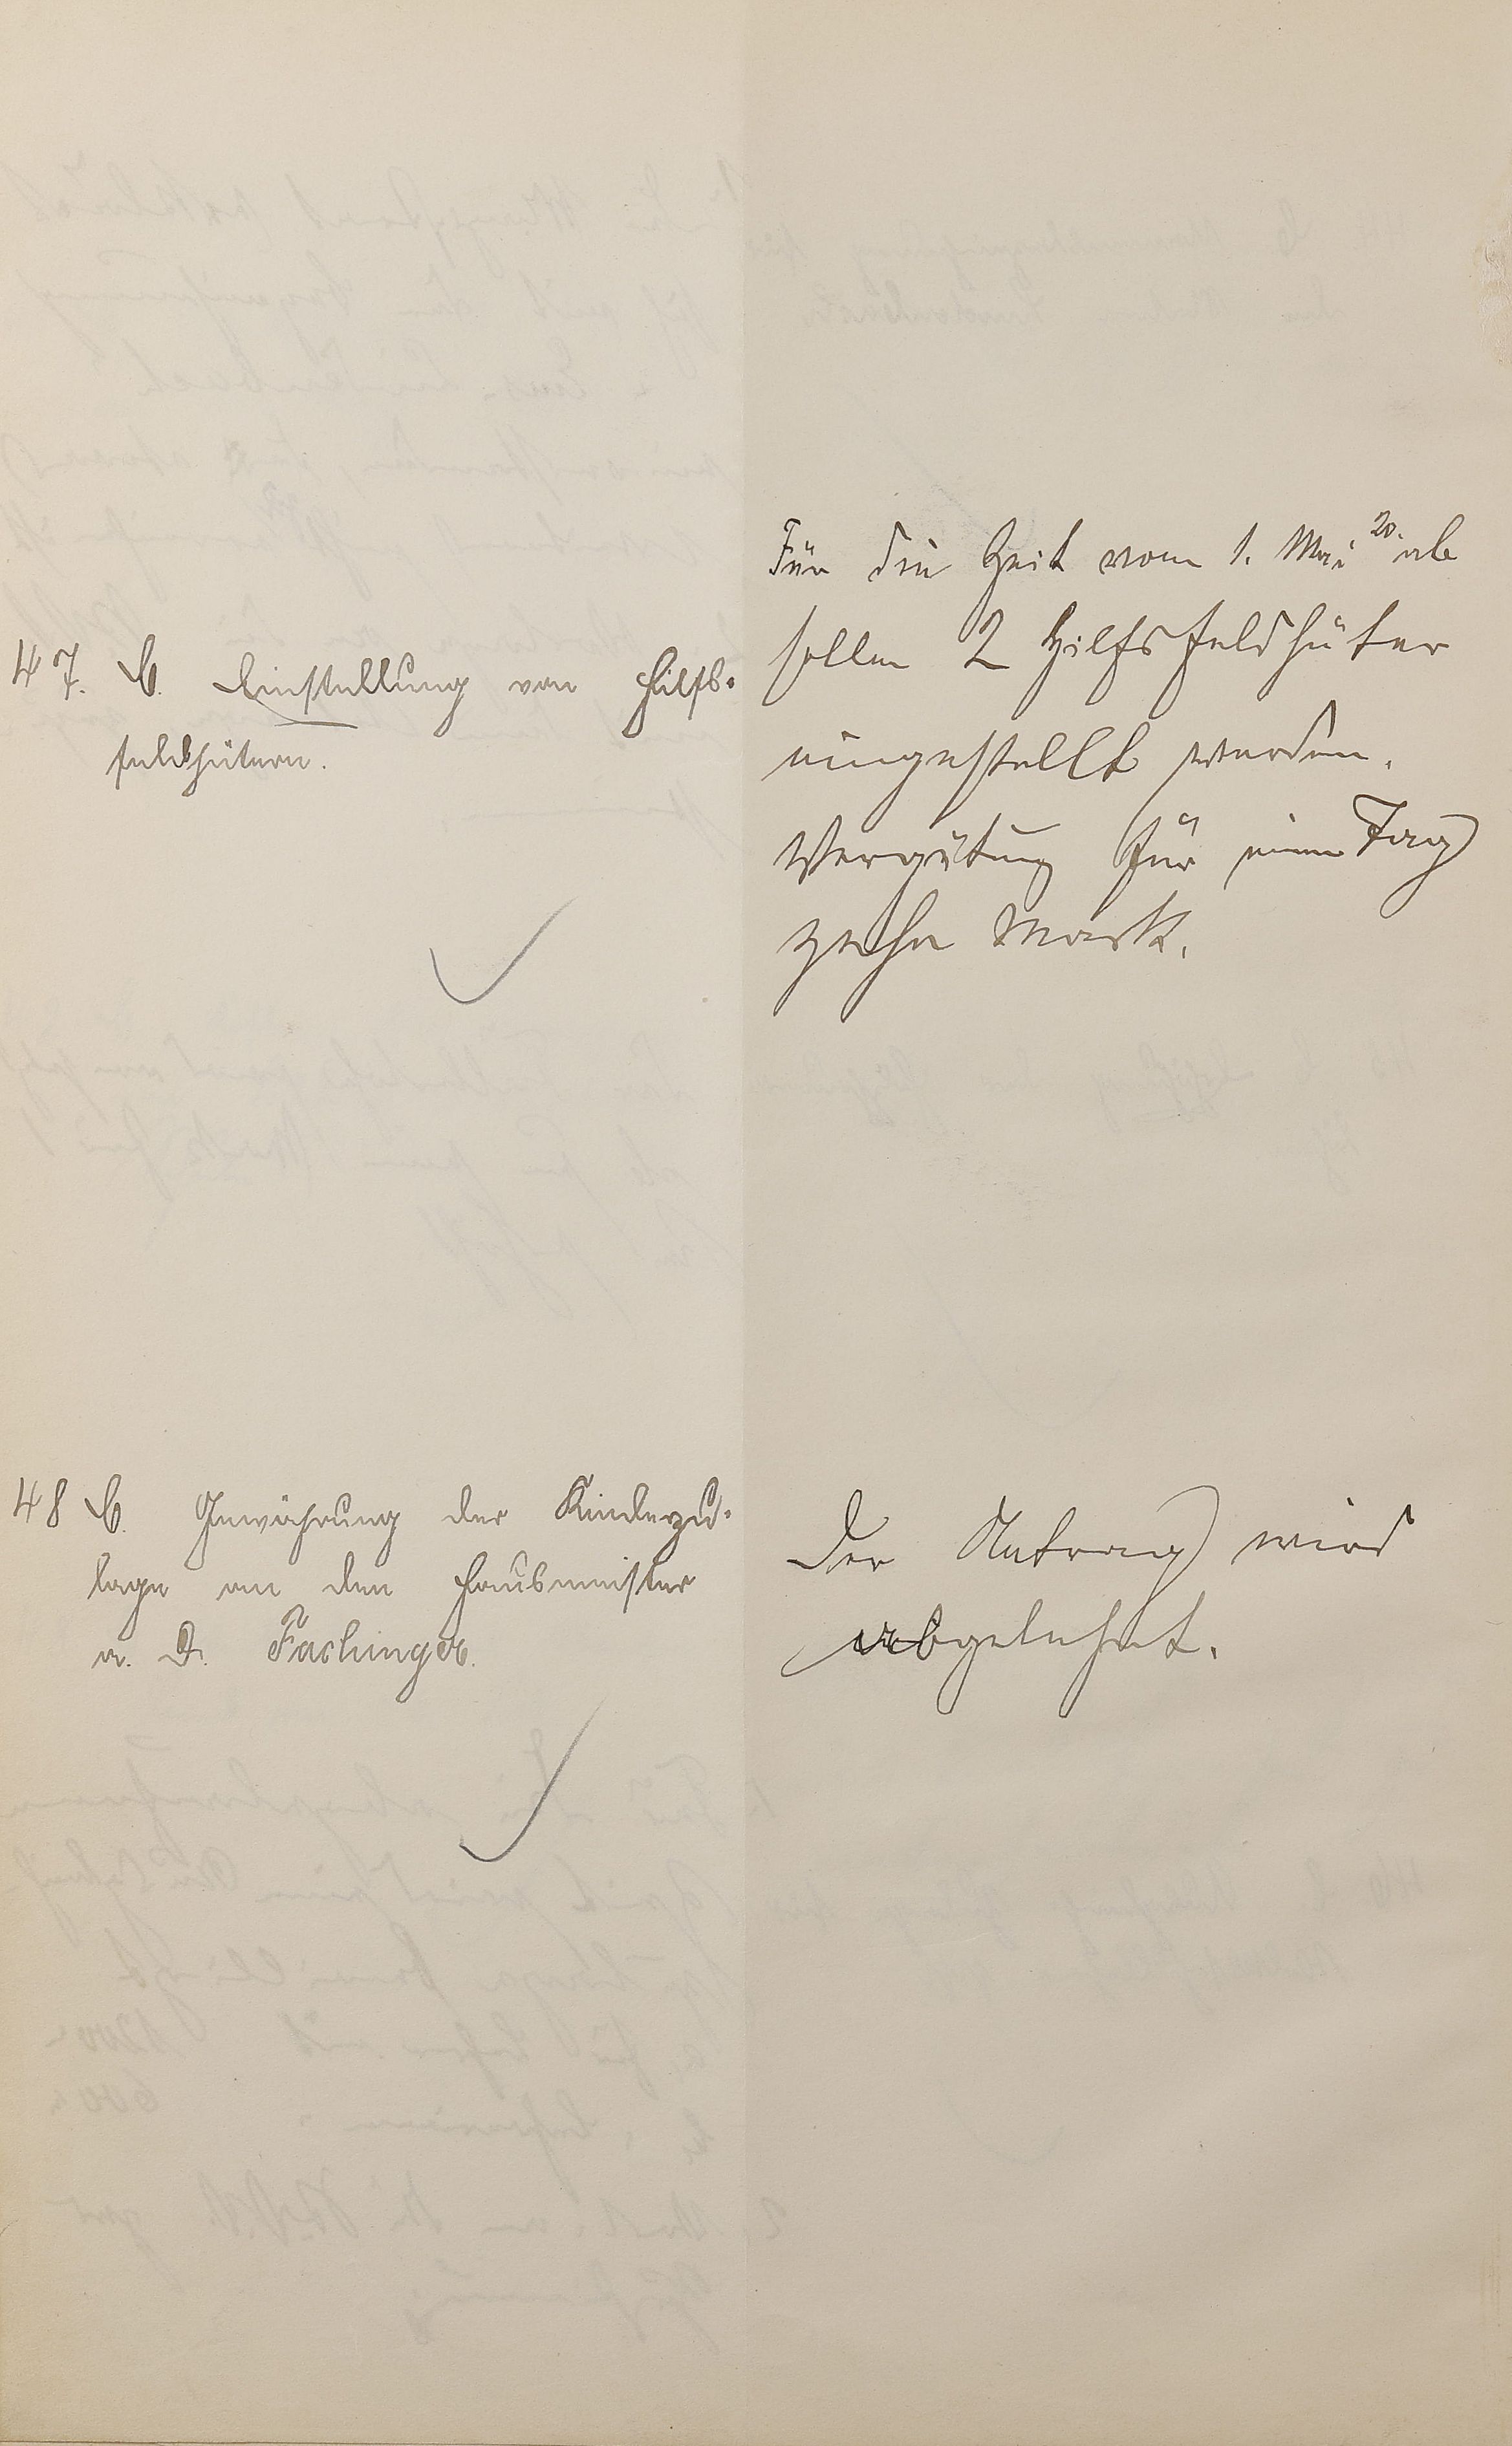 47. C. Einstellung von Hilfs-
feldhütern.
Für die Zeit vom 1. Mai 20. ab
sollen 2 Hilfsfeldhüter
eingestellt werden.
Vergütung für einen Tag
zehn Mark.
48 C. Gewährung der Kinderzu-
lage an den Hausmeister
a. D. Fachinger.
Der Antrag wird
abgelehnt.